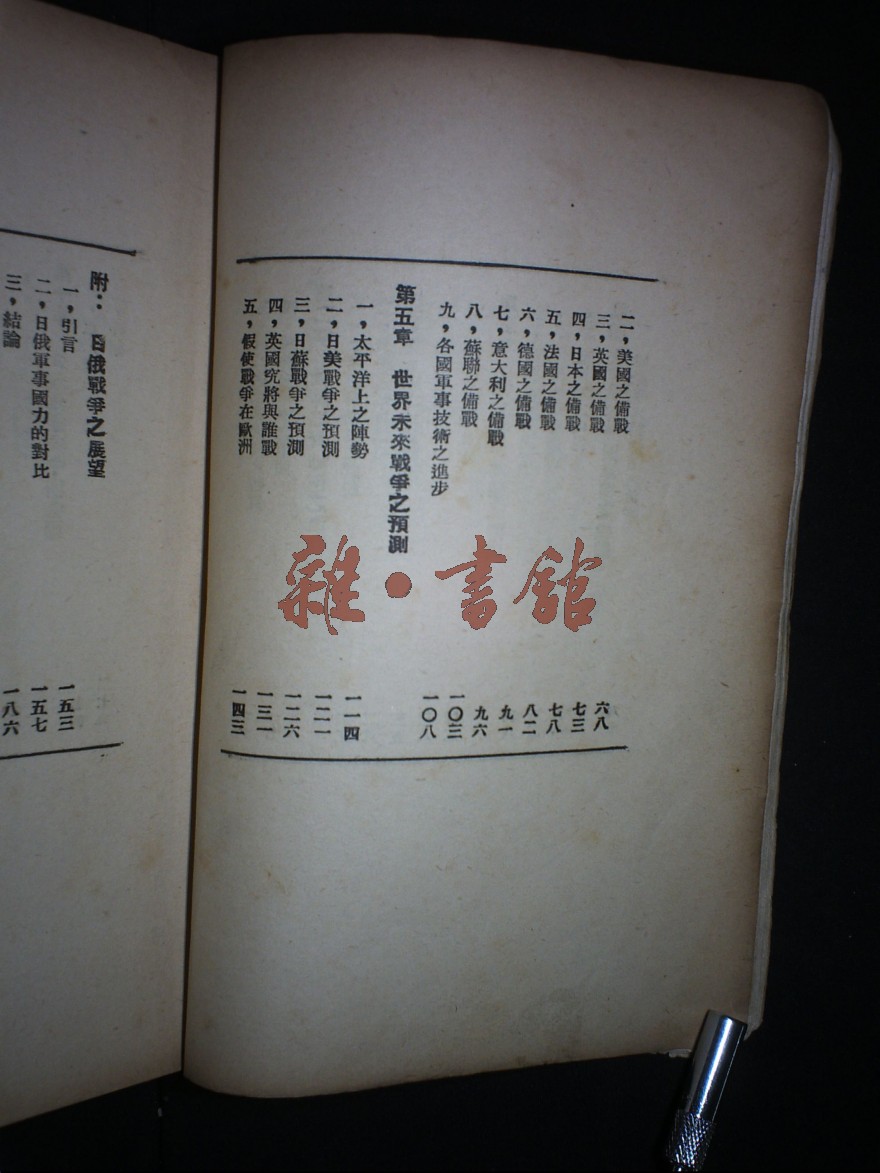 二，美國之備戰 六八
三，英國之備戰 七三
四，日本之備戰 七八
五，法國之備戰 八二
六，德國之備戰 九一
七，意大利之備戰 九六
八，蘇聯之備戰 一〇三
九，各國軍事技術之進步 一〇八
第五章 世界未來戰爭之預測
一，太平洋上之陣勢 一一四
二，日美戰爭之預測 一二一
三，日蘇戰爭之預測 一二六
四，英國究將與誰戰 一三一
五，假使戰爭在歐洲 一四三
附： 日俄戰爭之展望
一，引言 一五三
二，日俄軍事國力的對比 一五七
三，結論 一八六
雜·書館